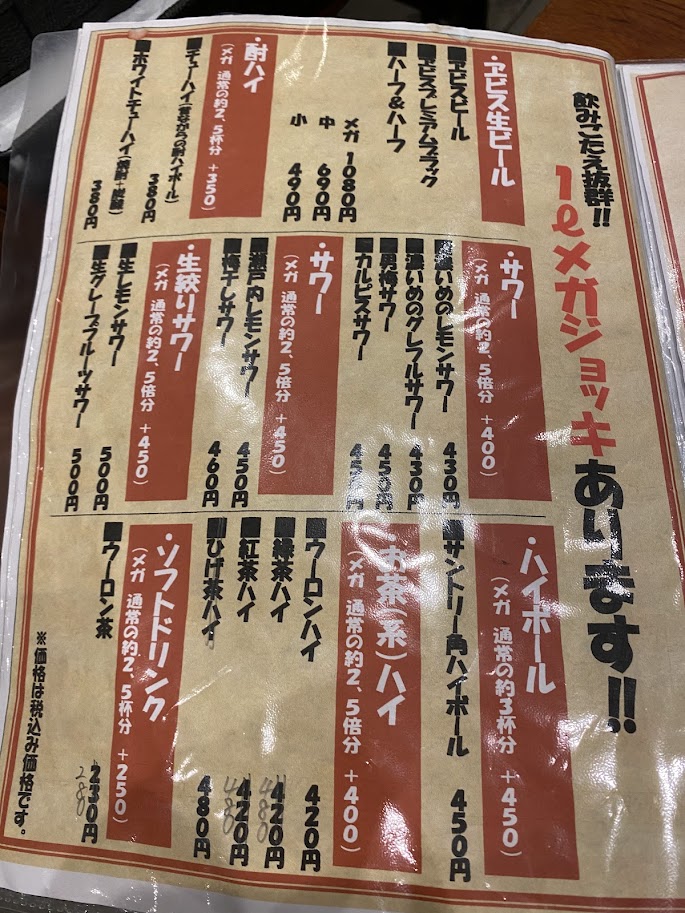 飲みごたえ抜群!!
1ℓメガジョッキあります!!
・ヱビス生ビール
■ヱビスビール
■ヱビスプレミアムブラック
■ハーフ&ハーフ
メガ 1080円
中 690円
小 490円
・酎ハイ
(メガ 通常の約2、5杯分 +350)
■チューハイ(昔ながらの酎ハイボール) 380円
■ホワイトチューハイ 380円
・サワー
(メガ 通常の約2、5倍分 +400)
■濃いめのレモンサワー 430円
■濃いめのグレフルサワー 430円
■男梅サワー 450円
■カルピスサワー 450円
・サワー
(メガ 通常の約2、5倍分 +450)
■瀬戸内レモンサワー 450円
■梅干しサワー 460円
・生絞りサワー
(メガ 通常の約2、5倍分 +450)
■生レモンサワー 500円
■生グレープフルーツサワー 500円
・ハイボール
(メガ 通常の約3杯分 +450)
■サントリー角ハイボール 450円
・お茶(系)ハイ
(メガ 通常の約2、5倍分 +400)
■ウーロンハイ 420円
■緑茶ハイ 420円 480
■紅茶ハイ 420円 480
■ひげ茶ハイ 480円
・ソフトドリンク
(メガ 通常の約2、5杯分 +250)
■ウーロン茶 230円 280
※価格は税込み価格です。